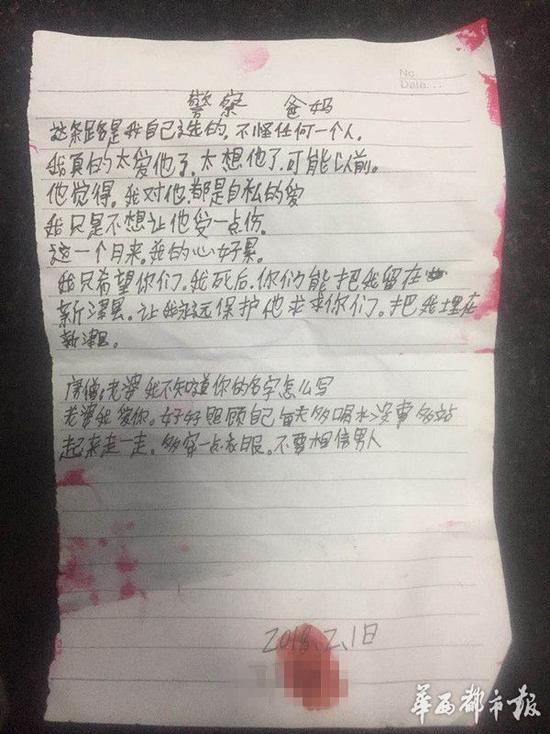 No.
Date.
警察 爸妈
这条路是我自己选的.不怪任何一个人.
我真的太爱他了.太想他了.可能以前.
他觉得.我对他.都是自私的爱
我只是不想让他受一点伤.
这一个月来.我的心好累.
我只希望你们.我死后.你们能把我留在
新津县.让我永远保护他求求你们.把我埋在
新津县。
老婆我不知道你的名字怎么写
老婆我爱你.好好照顾自己每天多喝水没事多站
起来走一走.多穿一点衣服.不要相信男人
2018.2.1日
华西都市报